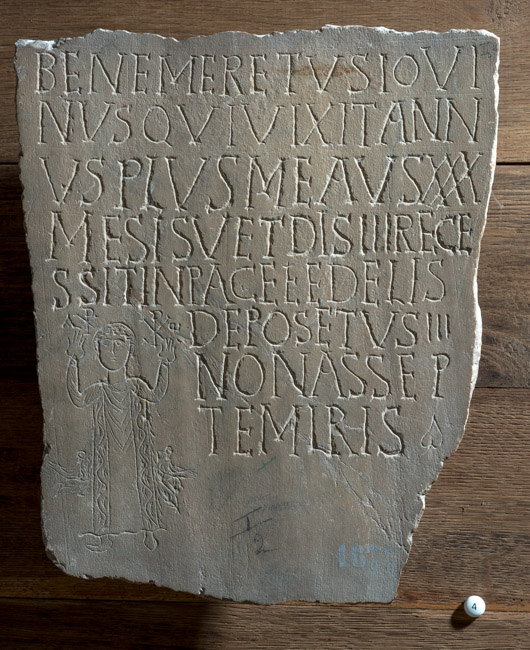 BENEMERETVSIOVI
NVSQVIVIXITANN
VSPLVSMEAVSXXX
MESISVETDISIIIRECE
SSITINPACEFEDELIS
DEPOSETVSIII
NONASSEP
TEMIRIS
4